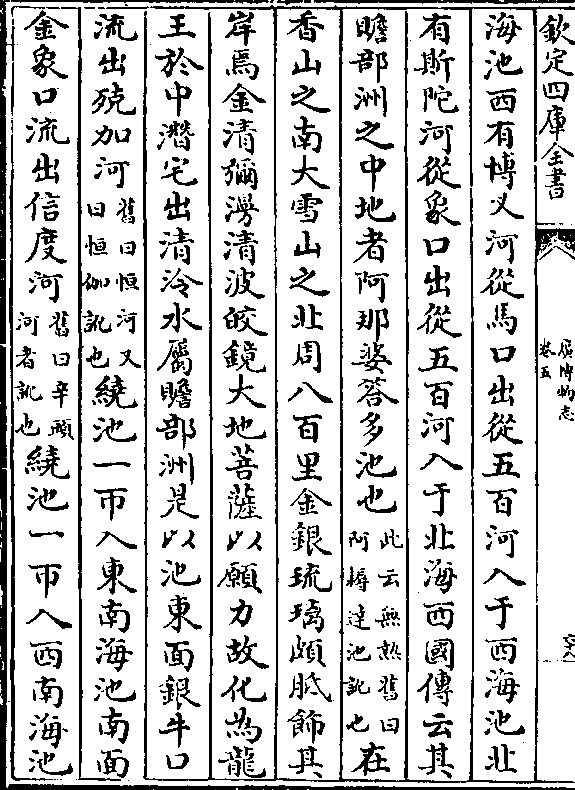 欽定四庫全書
廣博物志
卷五
海池西有博叉河從馬口出從五百河入于西海池北
有斯陀河從象口出從五百河入于北海西國傳云其
贍部洲之中地者阿那婆答多池也此云無熱舊曰阿耨達池訛也在
香山之南大雪山之北周八百里金銀琉璃頗胝飾其
岸焉金清彌漫清波皎鏡大地菩薩以願力故化為龍
王於中潛宅出清冷水屬贍部洲是以池東面銀牛口
流出殑加河舊曰恒河又曰恒伽訛也繞池一帀入東南海池南面
金象口流出信度河舊曰辛頭河者訛也繞池一帀入西南海池